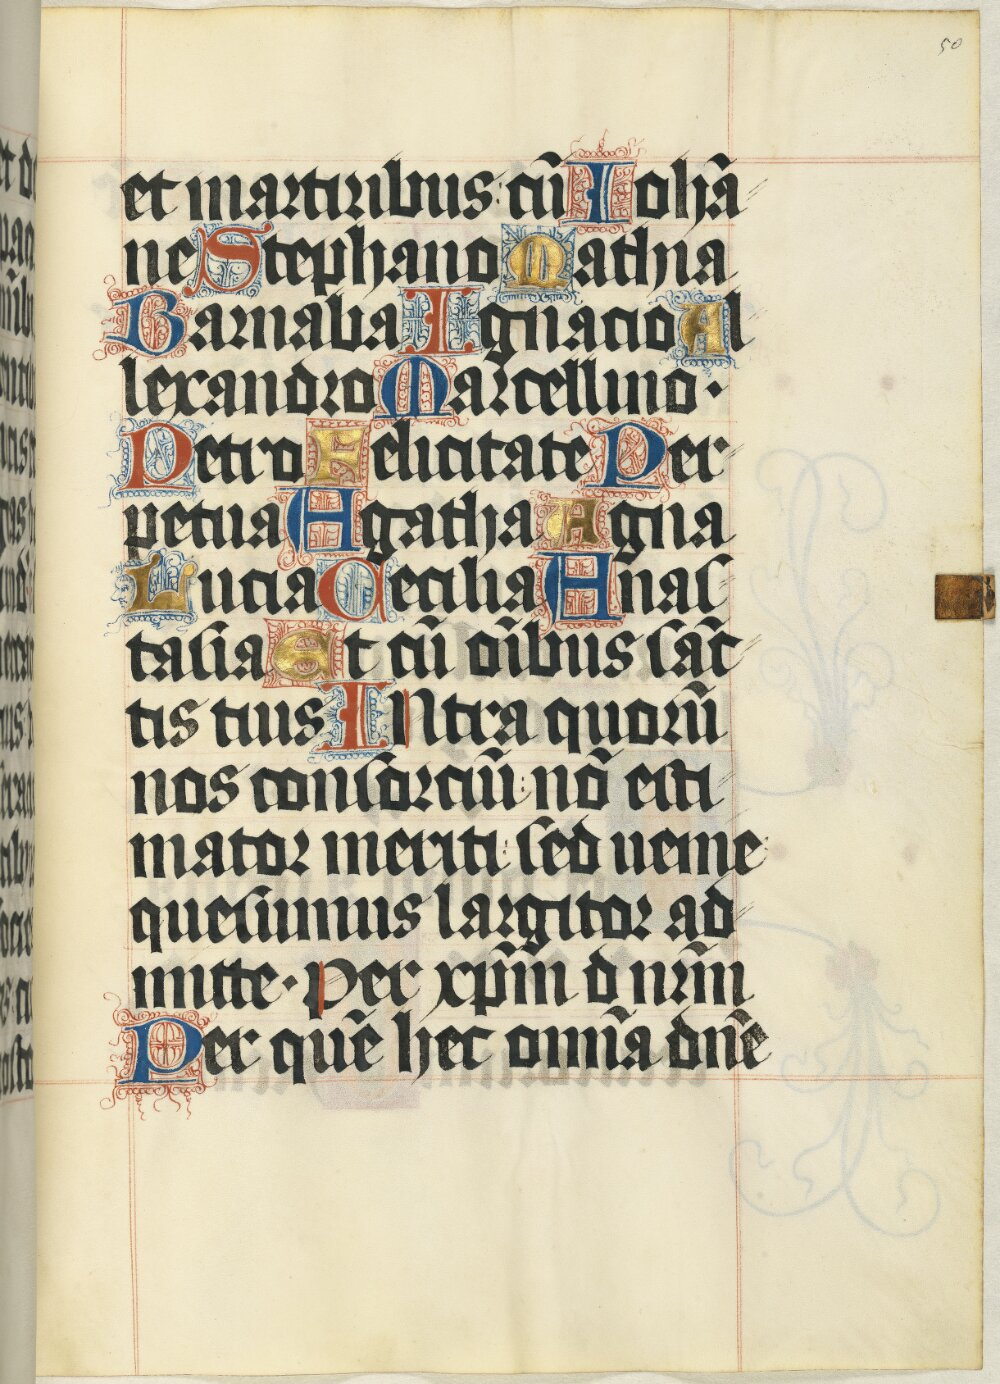 50
et martiribus: cū Iohā
ne Stephano Mathia
Barnaba Ignacio Al
lexandro Marcellino·
Petro Felicitate Per
petua Agatha Agna
Lucia Cecilia Anas
tasia Et cū oībus sāc
tis tuis INtra quorū
nos consorciū: nō esti
mator meriti: sed uenie
quesumus largitor ad
mitte· Per xp̄m d nr̄m
Per quē hec omīa dn̄e